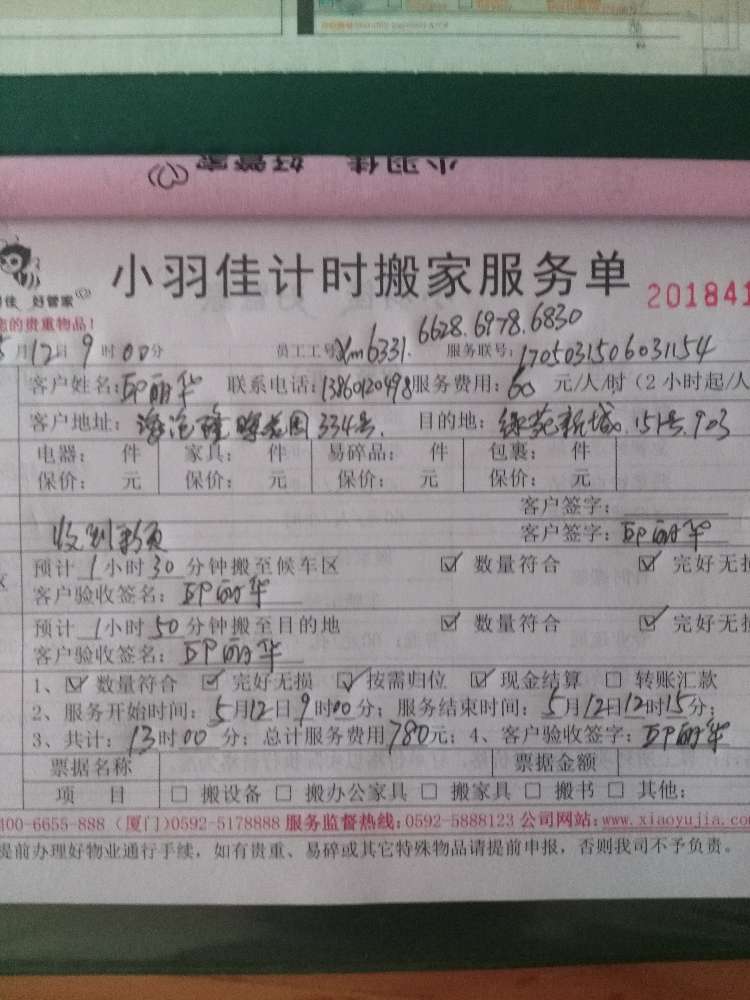 小羽佳 好管家
小羽佳计时搬家服务单 201841
您的贵重物品！
5月12日9时00分 员工工号:xm6331. 6628.6978.6830 服务联号:1705031506031154
客户姓名:邱丽华 联系电话:13860120498 服务费用:60元/人/时（2小时起/人
客户地址: 334号. 目的地:绿苑新城.151号.903
电器: 件 家具: 件 易碎品: 件 包裹: 件
保价: 元 保价: 元 保价: 元 保价: 元
客户签字:
收到 客户签字:邱丽华
预计1小时30分钟搬至候车区 ☑ 数量符合 ☑ 完好无损
客户验收签名:邱丽华
预计1小时50分钟搬至目的地 ☑ 数量符合 ☑ 完好无损
客户验收签名:邱丽华
1、☑ 数量符合 ☑ 完好无损 ☑ 按需归位 ☑ 现金结算 □ 转账汇款
2、服务开始时间:5月12日9时00分; 服务结束时间:5月12日12时15分;
3、共计:13时00分; 总计服务费用780元; 4、客户验收签字:邱丽华
票据名称 票据金额
项 目 □ 搬设备 □ 搬办公家具 □ 搬家具 □ 搬书 □ 其他:
400-6655-888（厦门）0592-5178888 服务监督热线:0592-5888123 公司网站:www.xiaoyujia.co
提前办理好物业通行手续，如有贵重、易碎或其它特殊物品请提前申报，否则我司不予负责。